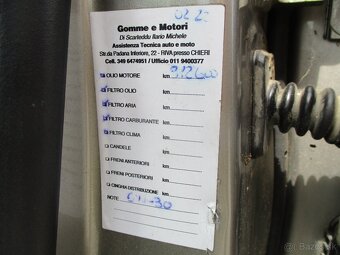 02 22
Gomme e Motori
Di Scarleddu Ilario Michele
Assistenza Tecnica auto e moto
Strada Padana Inferiore, 22 - RIVA presso CHIERI
Cell. 349 6474951 / Ufficio 011 9400377
OLIO MOTORE km 312600
FILTRO OLIO km
FILTRO ARIA km
FILTRO CARBURANTE km
FILTRO CLIMA km
CANDELE km
FRENI ANTERIORI km
FRENI POSTERIORI km
CINGHIA DISTRIBUZIONE km
NOTE
Bazar.sk